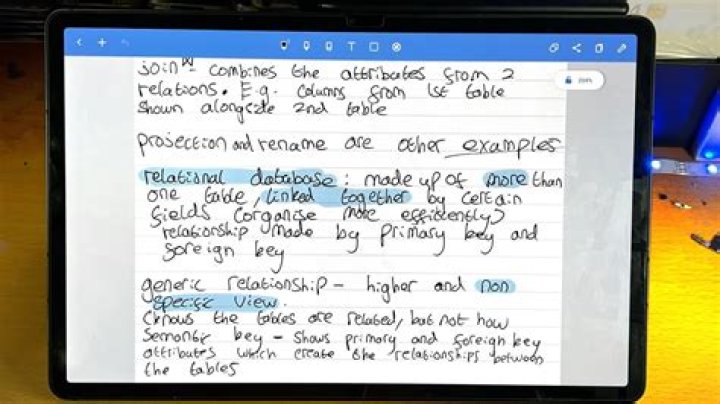 T
200%
join - combines the attributes from 2
relations. E.g. columns from 1st table
shown alongside 2nd table
projection and rename are other examples
relational database: made up of more than
one table, linked together by certain
fields (organise more efficiently)
relationship made by primary key and
foreign key
generic relationship - higher and non
specific view.
(knows the tables are related, but not how
semantic key - shows primary and foreign key
attributes which create the relationships between
the tables